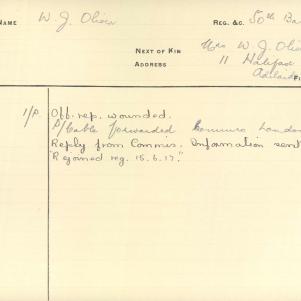 NAME W. J. Oliver REG. &C. 50th Ba
NEXT OF KIN Mrs W. J. Oli
ADDRESS 11 Halifax
Adelaide
1/P Off. rep. wounded.
P/Cable forwarded Commrs London
Reply from Commrs. Information sent
"Rejoined reg. 15.6.17."